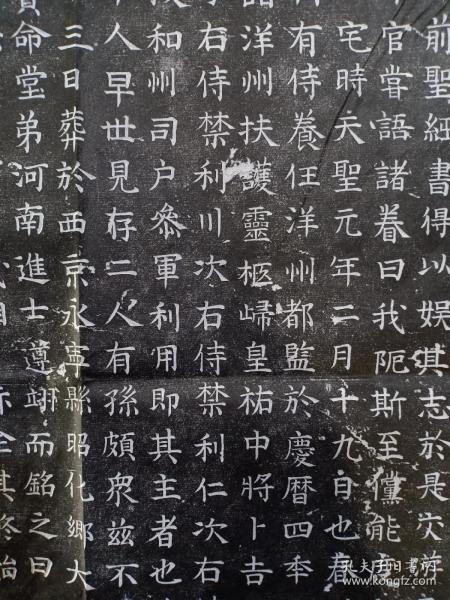 前聖經書得以娛其志於是次前
官嘗語諸眷曰我阨斯至儻能
宅時天聖元年二月十九日也春
有侍養任洋州都監於慶曆四年
洋州扶護靈柩歸皇祐中將卜吉
右侍禁利川次右侍禁利仁次右
和州司户叅軍利用即其主者也
人早世見存二人有孫頗衆兹不
三日葬於西京永寧縣昭化鄉大
命堂弟河南進士遵翊而銘之曰
其終始
孔夫子旧书网
kongfz.com